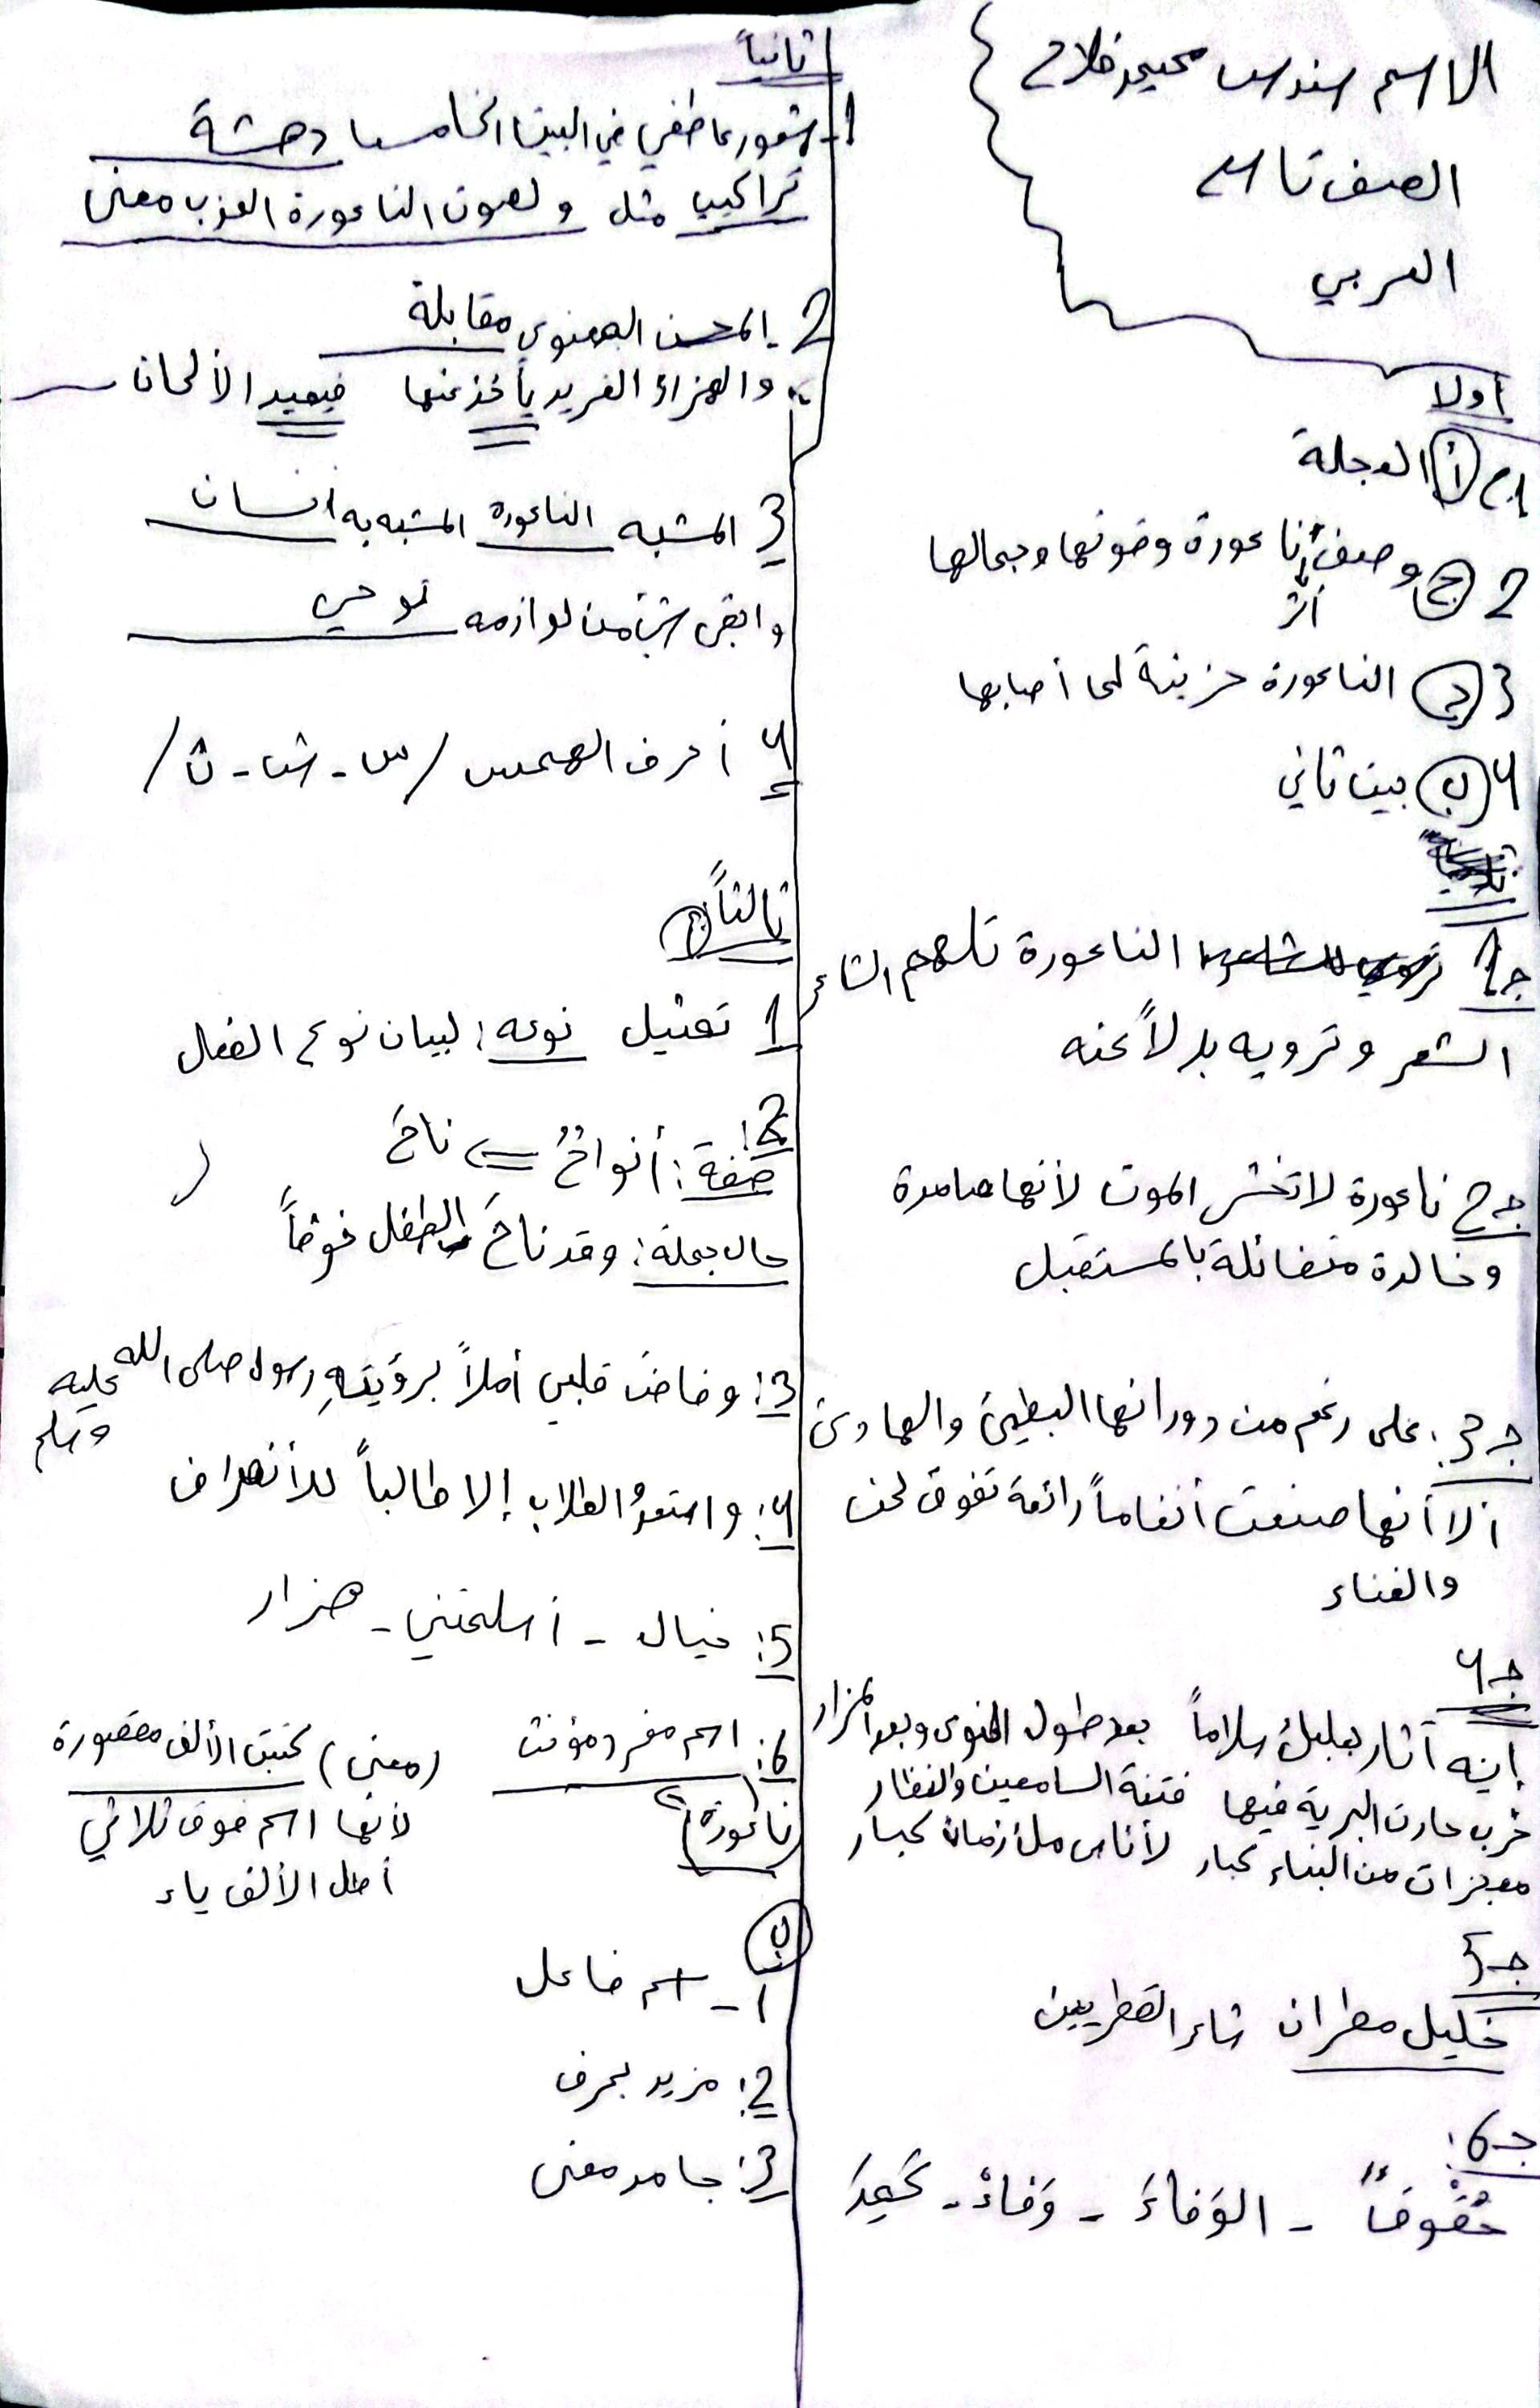 الاسم سندس محيمد فلاح
الصف تاسع
العربي
أولا
ج1 أ العجلة
2 ج وصف ناعورة وضوئها وجمالها
أثر
3 د الناعورة حزينة لما أصابها
4 ب بيت ثاني
ج1 الناعورة تلهم الشاعر
الشعر وترويه بدلاً عنه
ج2 ناعورة لا تخشى الموت لأنها صامدة
وخالدة متفائلة بالمستقبل
ج3: على رغم من دورانها البطيئ والهادئ
ألا أنها صنعت أنغاماً رائعة تفوق لحن
والغناء
ج4
إيه آثار بعلبك سلاماً بعد طول النوى وبعد المزار
خرب حارت البرية فيها فتنة السامعين والنظار
معجزات من البناء كبار لأناس ملئ زمان كبار
ج5
خليل مطران شاعر القطريين
ج6:
حُقُوقاً - الوَفاءَ - وَفاءْ - كَيدَ
ثانياً
1- شعور عاطفي في البيت الخامس دهشة
تراكيب مثل ولصوت الناعورة العذب معنى
2- المحسن المعنوي مقابلة
والهزار الفريد يأخذ عنها فيعيد الألحان
3 المشبه الناعورة المشبه به إنسان
وابقى شيئ من لوازمه توحي
4 أحرف الهمس / س - ش - ت /
ثالثاً أ
1 تمثيل نوعه: لبيان نوع الفعل
2:
صفة: أنواحُ <= ناحَ
حال جملة: وقد ناحَ الطفل خوفاً
3: وفاضَ قلبي أملاً برؤيتهِ رسول صلى الله عليه
وسلم
4: واستعدُ الطلاب إلا طالباً للأنصراف
5: خيال - أسلمتني - هزار
6: اسم مفرد مؤنث (معنى) كتبت الألف مقصورة
(ناعورة) لأنها اسم فوق ثلاثي
أصل الألف ياء
ب
1- اسم فاعل
2: مزيد بحرف
3: جامد معنى